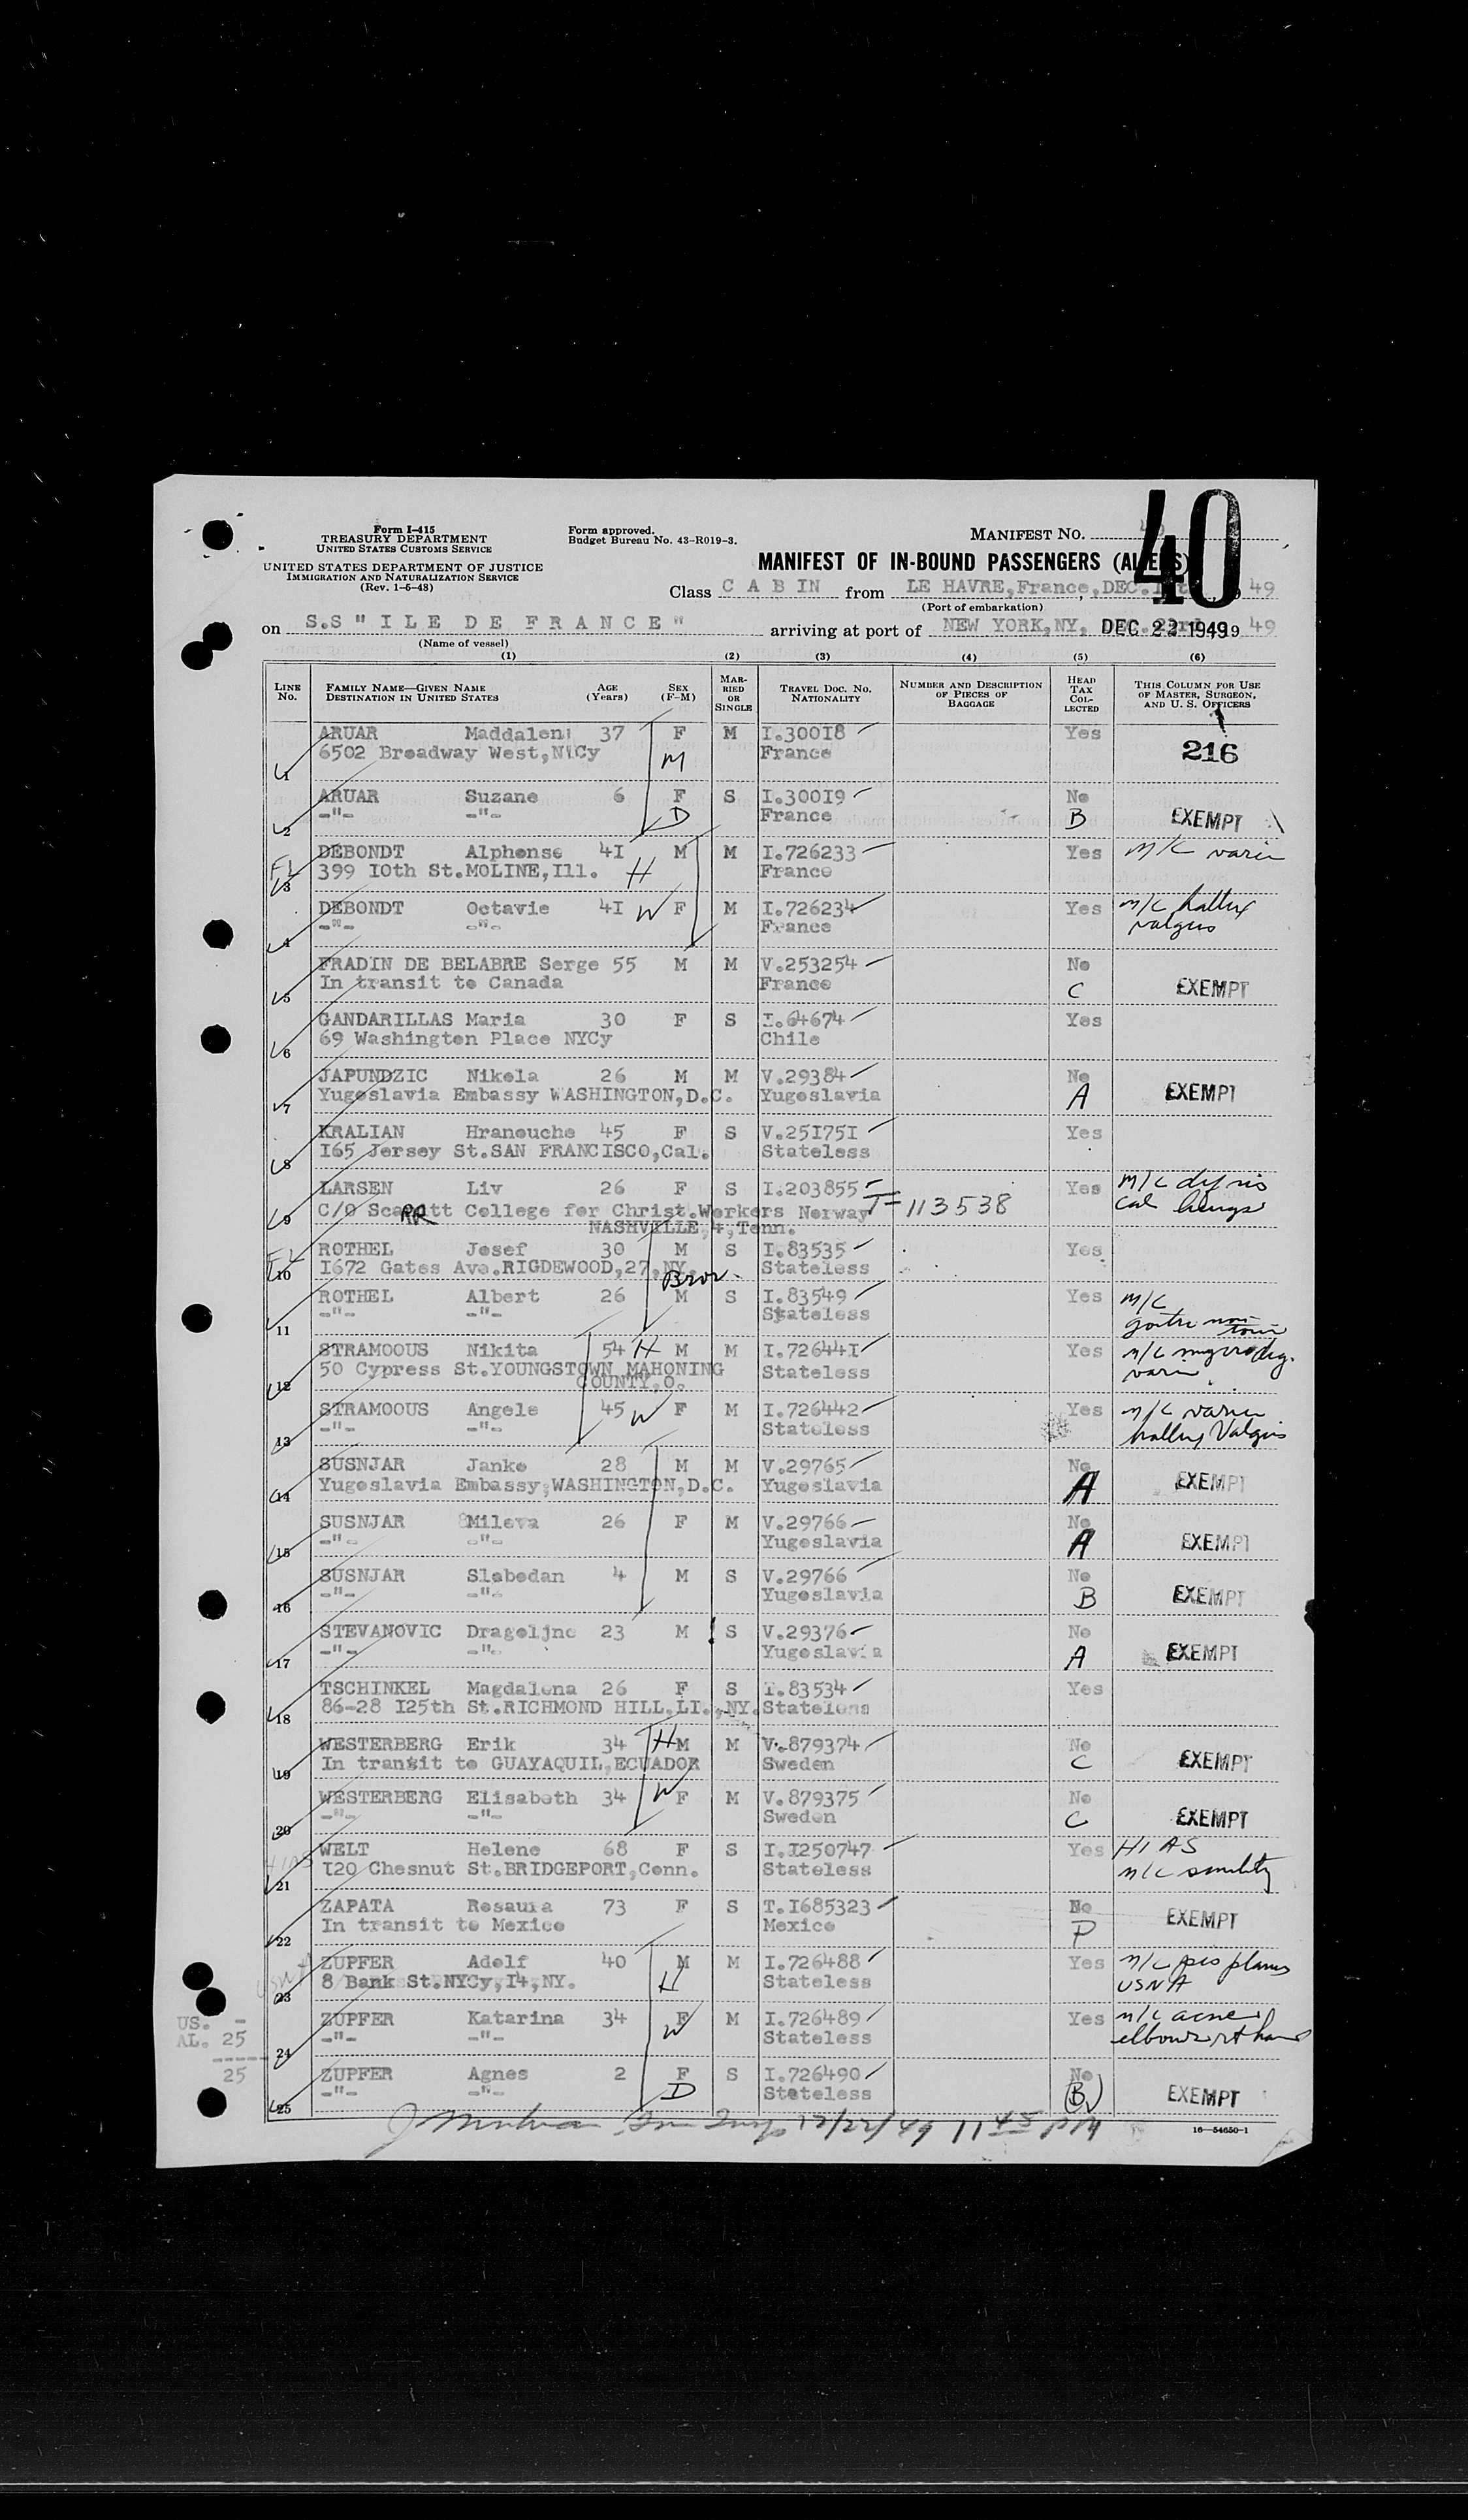 40
Form I-415
TREASURY DEPARTMENT
UNITED STATES CUSTOMS SERVICE
UNITED STATES DEPARTMENT OF JUSTICE
IMMIGRATION AND NATURALIZATION SERVICE
(Rev. 1-5-48)
Form approved.
Budget Bureau No. 43-R019-3.
MANIFEST NO.
MANIFEST OF IN-BOUND PASSENGERS (ALIENS)
Class C A B IN from LE HAVRE,France,DEC. 49
(Port of embarkation)
on S.S " I L E D E F R A N C E " arriving at port of NEW YORK,NY, DEC 22 1949 19 49
(Name of vessel)
(1) (2) (3) (4) (5) (6)
LINE No. FAMILY NAME—GIVEN NAME DESTINATION IN UNITED STATES AGE (Years) SEX (F-M) MARRIED OR SINGLE TRAVEL DOC. NO. NATIONALITY NUMBER AND DESCRIPTION OF PIECES OF BAGGAGE HEAD TAX COLLECTED THIS COLUMN FOR USE OF MASTER, SURGEON, AND U. S. OFFICERS
1 ARUAR Maddalen 37 F M I.30018 Yes
6502 Broadway West,NYCy M France 216
2 ARUAR Suzane 6 F S I.30019 No
-"- -"- D France B EXEMPT
3 DEBONDT Alphonse 4I M M I.726233 Yes m/c varic
399 I0th St.MOLINE,Ill. H France
4 DEBONDT Octavie 4I W F M I.726234 Yes m/c hallux
-"- -"- France valgus
5 FRADIN DE BELABRE Serge 55 M M V.253254 No
In transit to Canada France C EXEMPT
6 GANDARILLAS Maria 30 F S I.64674 Yes
69 Washington Place NYCy Chile
7 JAPUNDZIC Nikola 26 M M V.29384 No
Yugoslavia Embassy WASHINGTON,D.C. Yugoslavia A EXEMPT
8 KRALIAN Hranouche 45 F S V.25I75I Yes
I65 Jersey St.SAN FRANCISCO,Cal. Stateless
9 LARSEN Liv 26 F S I.203855 Yes m/c
C/O Scarritt College for Christ.Workers Norway T-113538
NASHVILLE,4,Tenn.
10 ROTHEL Josef 30 M S I.83535 Yes
I672 Gates Ave.RIGDEWOOD,27,NY. Bror. Stateless
11 ROTHEL Albert 26 M S I.83549 Yes m/c
-"- -"- Stateless goitre non toxic
12 STRAMOOUS Nikita 54 H M M I.72644I Yes m/c
50 Cypress St.YOUNGSTOWN MAHONING Stateless
COUNTY,O.
13 STRAMOOUS Angele 45 W F M I.726442 Yes m/c
-"- -"- Stateless hallux Valgus
14 SUSNJAR Janko 28 M M V.29765 No
Yugoslavia Embassy,WASHINGTON,D.C. Yugoslavia A EXEMPT
15 SUSNJAR Mileva 26 F M V.29766 No
-"- -"- Yugoslavia A EXEMPT
16 SUSNJAR Slobodan 4 M S V.29766 No
-"- -"- Yugoslavia B EXEMPT
17 STEVANOVIC Dragoljno 23 M S V.29376 No
-"- -"- Yugoslavia A EXEMPT
18 TSCHINKEL Magdalena 26 F S I.83534 Yes
86-28 I25th St.RICHMOND HILL,LI.,NY. Stateless
19 WESTERBERG Erik 34 H M M V.879374 No
In transit to GUAYAQUIL,ECUADOR Sweden C EXEMPT
20 WESTERBERG Elisabeth 34 W F M V.879375 No
-"- -"- Sweden C EXEMPT
21 WELT Helene 68 F S I.I250747 Yes HIAS
HIAS I20 Chesnut St.BRIDGEPORT,Conn. Stateless m/c senility
22 ZAPATA Rosaura 73 F S T.I685323 No
In transit to Mexico Mexico P EXEMPT
23 ZUPFER Adolf 40 M M I.726488 Yes m/c pes planus
USNA 8 Bank St.NYCy,I4,NY. H Stateless USNA
24 ZUPFER Katarina 34 F M I.726489 Yes m/c acne
-"- -"- W Stateless elbow rt hand
US. -
AL. 25
-----
25
25 ZUPFER Agnes 2 F S I.726490 No
-"- -"- D Stateless B EXEMPT
12/22/49 11 45 PM
16—54650-1